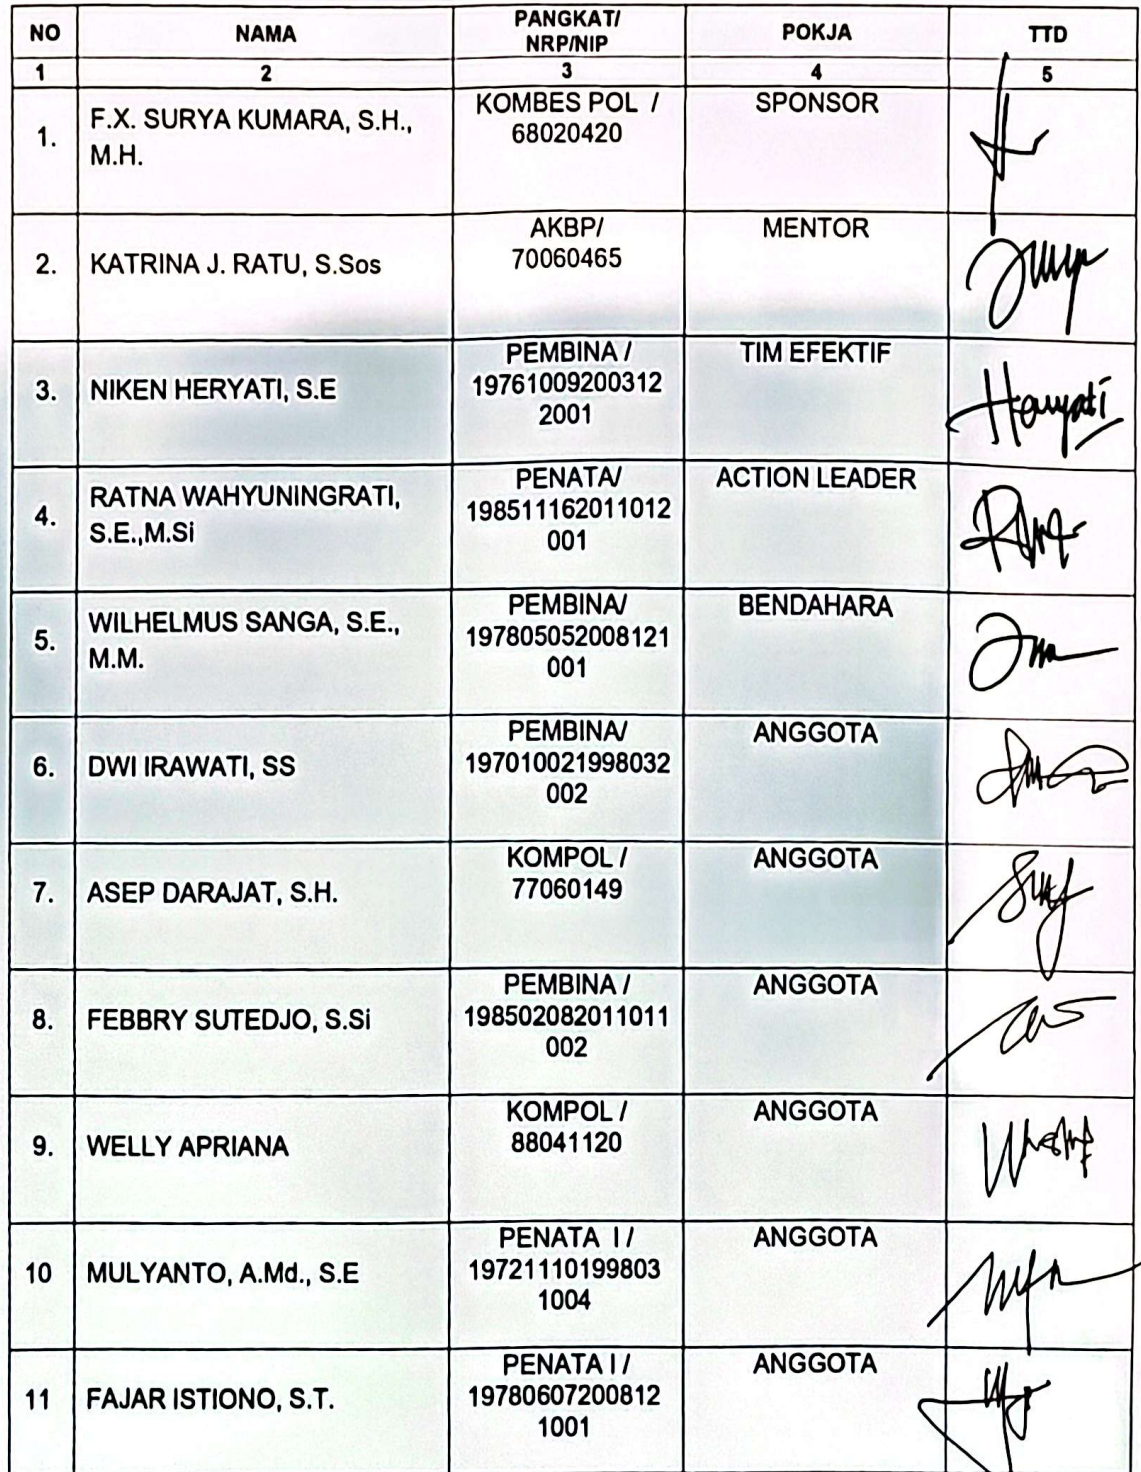 NO NAMA PANGKAT/ NRP/NIP POKJA TTD
1 2 3 4 5
1. F.X. SURYA KUMARA, S.H., M.H. KOMBES POL / 68020420 SPONSOR
2. KATRINA J. RATU, S.Sos AKBP/ 70060465 MENTOR
3. NIKEN HERYATI, S.E PEMBINA / 19761009200312 2001 TIM EFEKTIF Heryati
4. RATNA WAHYUNINGRATI, S.E.,M.Si PENATA/ 198511162011012 001 ACTION LEADER
5. WILHELMUS SANGA, S.E., M.M. PEMBINA/ 197805052008121 001 BENDAHARA
6. DWI IRAWATI, SS PEMBINA/ 197010021998032 002 ANGGOTA
7. ASEP DARAJAT, S.H. KOMPOL / 77060149 ANGGOTA
8. FEBBRY SUTEDJO, S.Si PEMBINA / 198502082011011 002 ANGGOTA
9. WELLY APRIANA KOMPOL / 88041120 ANGGOTA
10 MULYANTO, A.Md., S.E PENATA I / 19721110199803 1004 ANGGOTA
11 FAJAR ISTIONO, S.T. PENATA I / 19780607200812 1001 ANGGOTA